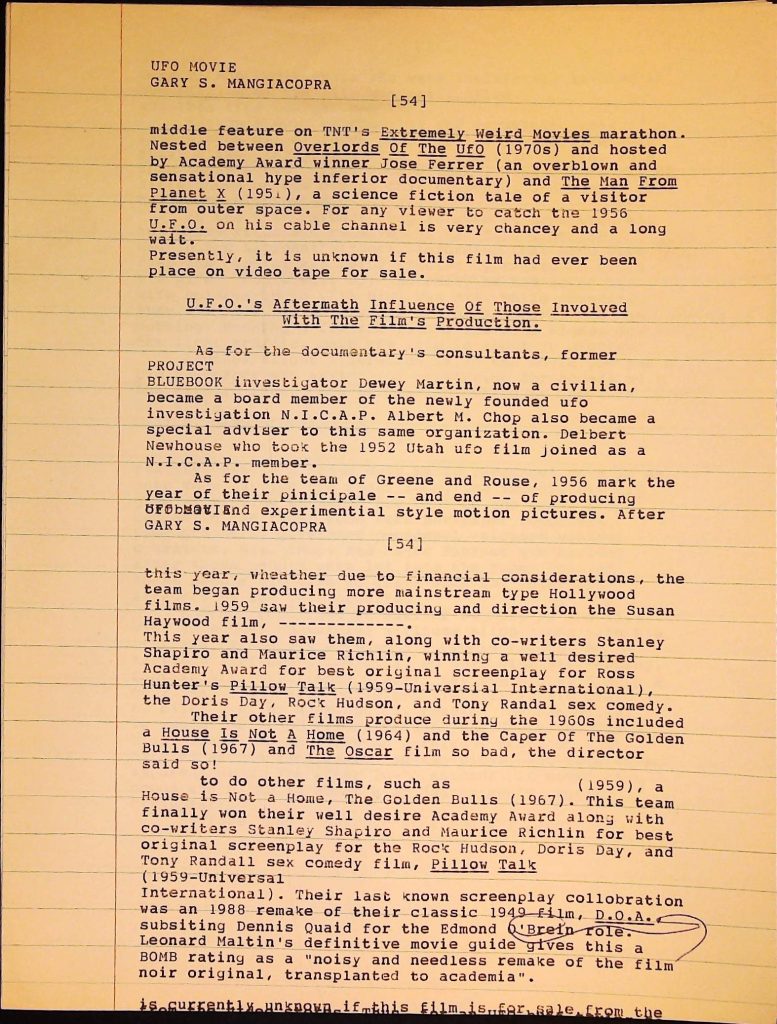 UFO MOVIE
GARY S. MANGIACOPRA
[54]
middle feature on TNT's Extremely Weird Movies marathon.
Nested between Overlords Of The UfO (1970s) and hosted
by Academy Award winner Jose Ferrer (an overblown and
sensational hype inferior documentary) and The Man From
Planet X (1951), a science fiction tale of a visitor
from outer space. For any viewer to catch the 1956
U.F.O. on his cable channel is very chancey and a long
wait.
Presently, it is unknown if this film had ever been
place on video tape for sale.
U.F.O.'s Aftermath Influence Of Those Involved
With The Film's Production.
As for the documentary's consultants, former
PROJECT
BLUEBOOK investigator Dewey Martin, now a civilian,
became a board member of the newly founded ufo
investigation N.I.C.A.P. Albert M. Chop also became a
special adviser to this same organization. Delbert
Newhouse who took the 1952 Utah ufo film joined as a
N.I.C.A.P. member.
As for the team of Greene and Rouse, 1956 mark the
year of their pinicipale -- and end -- of producing
and experimential style motion pictures. After
UFO MOVIE
GARY S. MANGIACOPRA
[54]
this year, wheather due to financial considerations, the
team began producing more mainstream type Hollywood
films. 1959 saw their producing and direction the Susan
Haywood film, -------------.
This year also saw them, along with co-writers Stanley
Shapiro and Maurice Richlin, winning a well desired
Academy Award for best original screenplay for Ross
Hunter's Pillow Talk (1959-Universial International),
the Doris Day, Rock Hudson, and Tony Randal sex comedy.
Their other films produce during the 1960s included
a House Is Not A Home (1964) and the Caper Of The Golden
Bulls (1967) and The Oscar film so bad, the director
said so!
to do other films, such as (1959), a
House is Not a Home, The Golden Bulls (1967). This team
finally won their well desire Academy Award along with
co-writers Stanley Shapiro and Maurice Richlin for best
original screenplay for the Rock Hudson, Doris Day, and
Tony Randall sex comedy film, Pillow Talk
(1959-Universal
International). Their last known screenplay collobration
was an 1988 remake of their classic 1949 film, D.O.A.,
subsiting Dennis Quaid for the Edmond O'Brein role.
Leonard Maltin's definitive movie guide gives this a
BOMB rating as a "noisy and needless remake of the film
noir original, transplanted to academia".
is currently unknown if this film is for sale from the